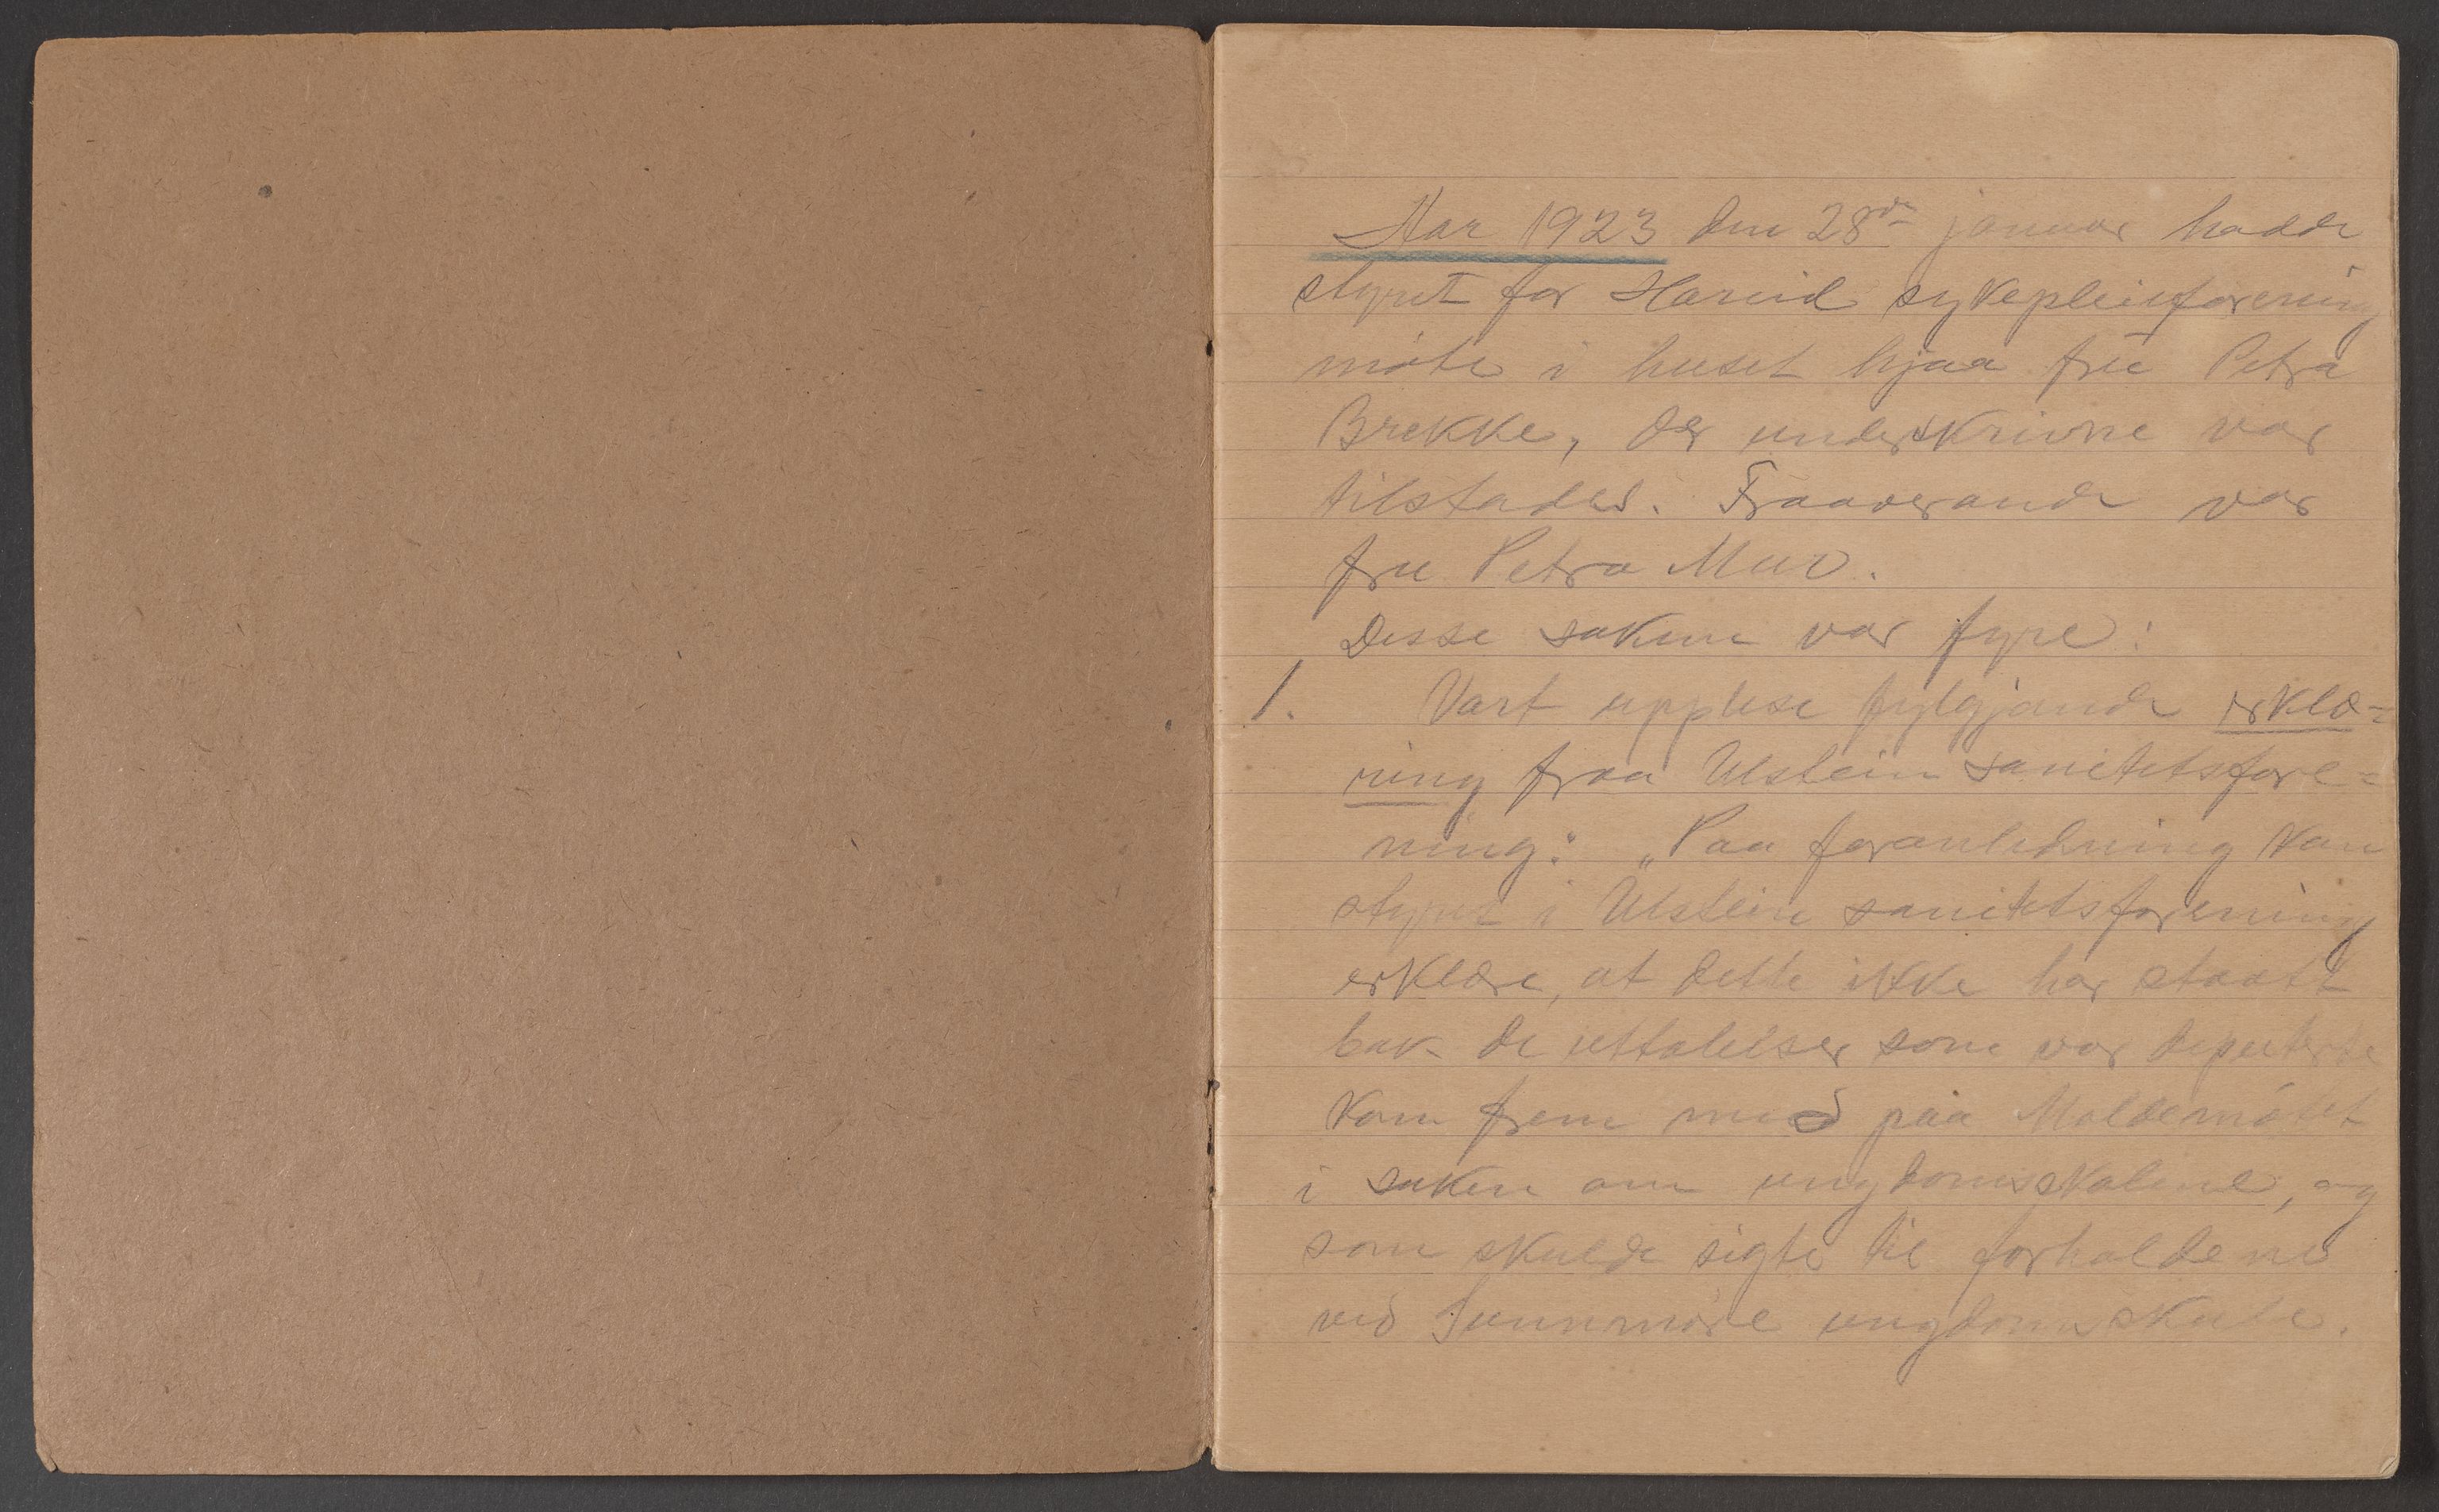 Aar 1923 den 28de januar hadde
styret for Hareid sykepleieforening
møte i huset hjaa frū Petra
Brekke, der underskrivne var
tilstades. Fraaverande var
fru Petra Mur.
Disse sakene var fyre:
1. Vart upplese fylgjande erklæ=
ring fraa Ulstein sanitetsfore=
ning: „Paa foranledning kan
styret i Ulstein sanitetsforening
erklære, at dette ikke har staatt
bak de uttalelser som vor deputerte
kom frem med paa Moldemøtet
i saken om ungdomsskolene, og
som skulde sigte til forholdene
ved Sunnmøre ungdomsskule.